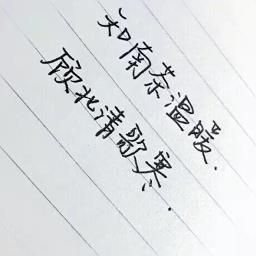 知南茶温暖.
顾北清歌寒..